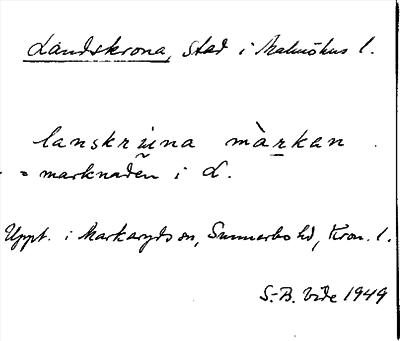 Landskrona, stad i Malmöhus l.
lanskruna màrkan
= marknaden i L.
Uppt. i Markaryds sn, Sunnerbo hd, Kron. l.
S.-B. Vide 1949